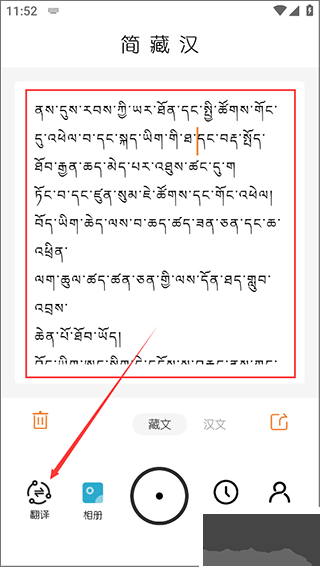 11:52
简藏汉
ནས་དུས་རབས་ཀྱི་ཡར་ཐོན་དང་སྤྱི་ཚོགས་གོང་
དུ་འཕེལ་བ་དང་སྐད་ཡིག་གི་ཐ་དང་བརྡ་སྤྲོད་
ཐོབ་རྒྱན་ཆད་མེད་པར་འཐུས་ཚང་དུ་ག
ཏོང་བ་དང་ཛུན་སུམ་ཇེ་ཚོགས་དང་གོང་འཕེལ།
བོད་ཡིག་ཆེད་ལས་བ་ཆད་ཚད་ཟན་ཅན་དང་ཆ་
འཕྲིན་
ལག་ཆུལ་ཚད་ཚན་ཅན་གྱི་ལས་དོན་ཐད་གླུབ་
འབྲས་
ཆེན་པོ་ཐོབ་ཡོད།
藏文
汉文
翻译
相册